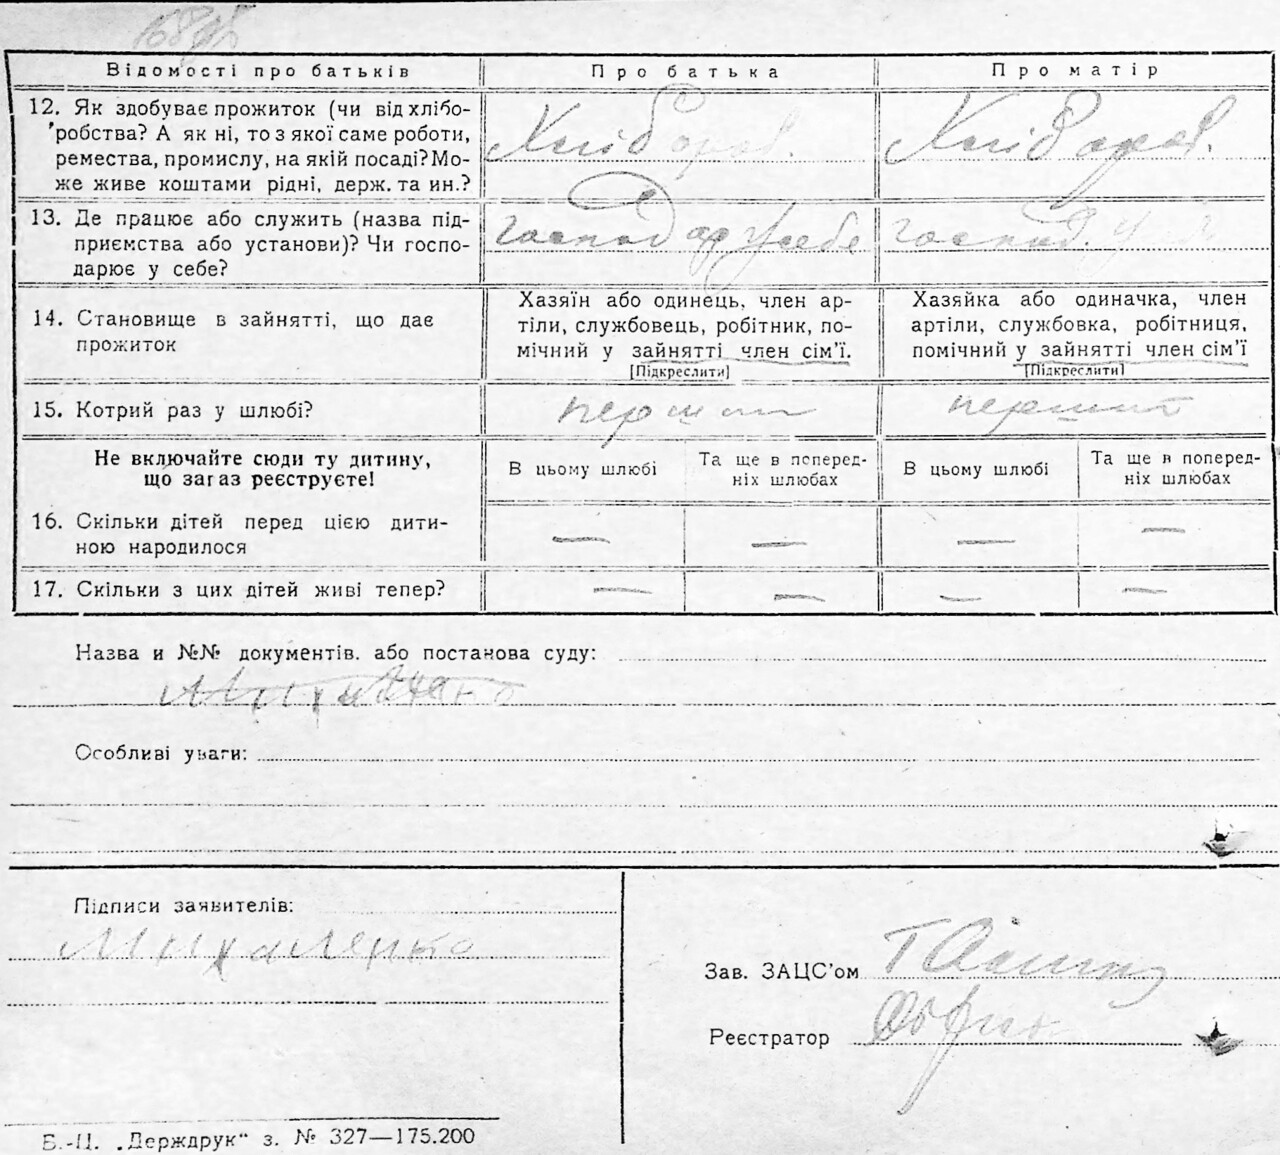 Відомості про батьків Про батька Про матір
12. Як здобуває прожиток (чи від хлібо-
робства? А як ні, то з якої саме роботи,
ремества, промислу, на якій посаді? Мо-
же живе коштами рідні, держ. та ин.?
Хлібороб. Хлібороб.
13. Де працює або служить (назва під-
приємства або установи)? Чи госпо-
дарює у себе?
господар у себе господ. у
14. Становище в зайнятті, що дає
прожиток
Хазяїн або одинець, член ар-
тіли, службовець, робітник, по-
мічний у зайнятті член сім'ї.
[Підкреслити]
Хазяйка або одиначка, член
артіли, службовка, робітниця,
помічний у зайнятті член сім'ї
[Підкреслити]
15. Котрий раз у шлюбі? перший перший
Не включайте сюди ту дитину,
що загаз реєструєте!
В цьому шлюбі
Та ще в поперед-
ніх шлюбах
В цьому шлюбі
Та ще в поперед-
ніх шлюбах
16. Скільки дітей перед цією дити-
ною народилося
— — — —
17. Скільки з цих дітей живі тепер? — — — —
Назва и №№ документів. або постанова суду:
Особливі уваги:
Підписи заявителів:
Михаленко
Зав. ЗАЦС'ом
Реєстратор
Б.-Ц. „Держдрук" з. № 327—175.200